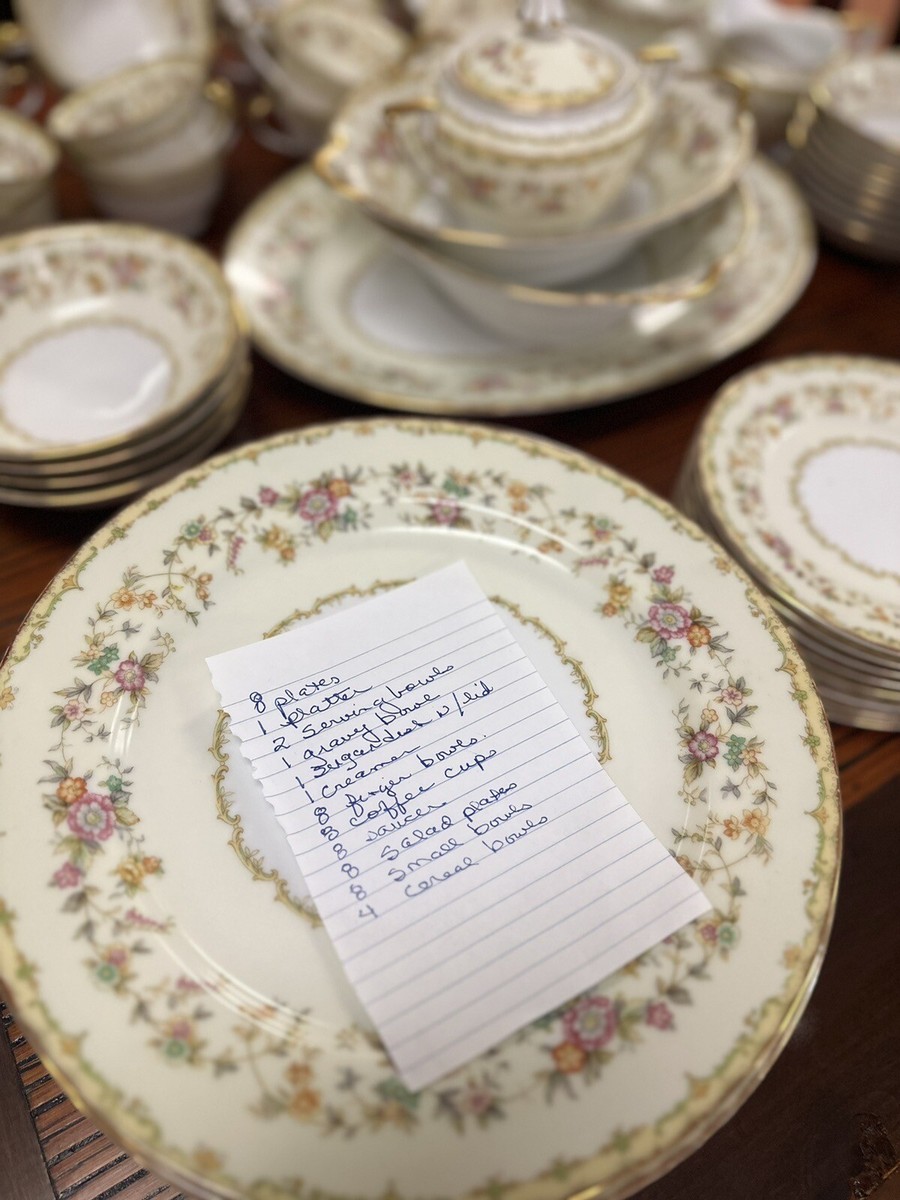 8 plates
1 platter
2 Serving bowls
1 gravy bowl
1 Sugar dish w/lid
1 Creamer
8 finger bowls.
8 coffee cups
8 saucers
8 salad plates
8 small bowls
4 cereal bowls